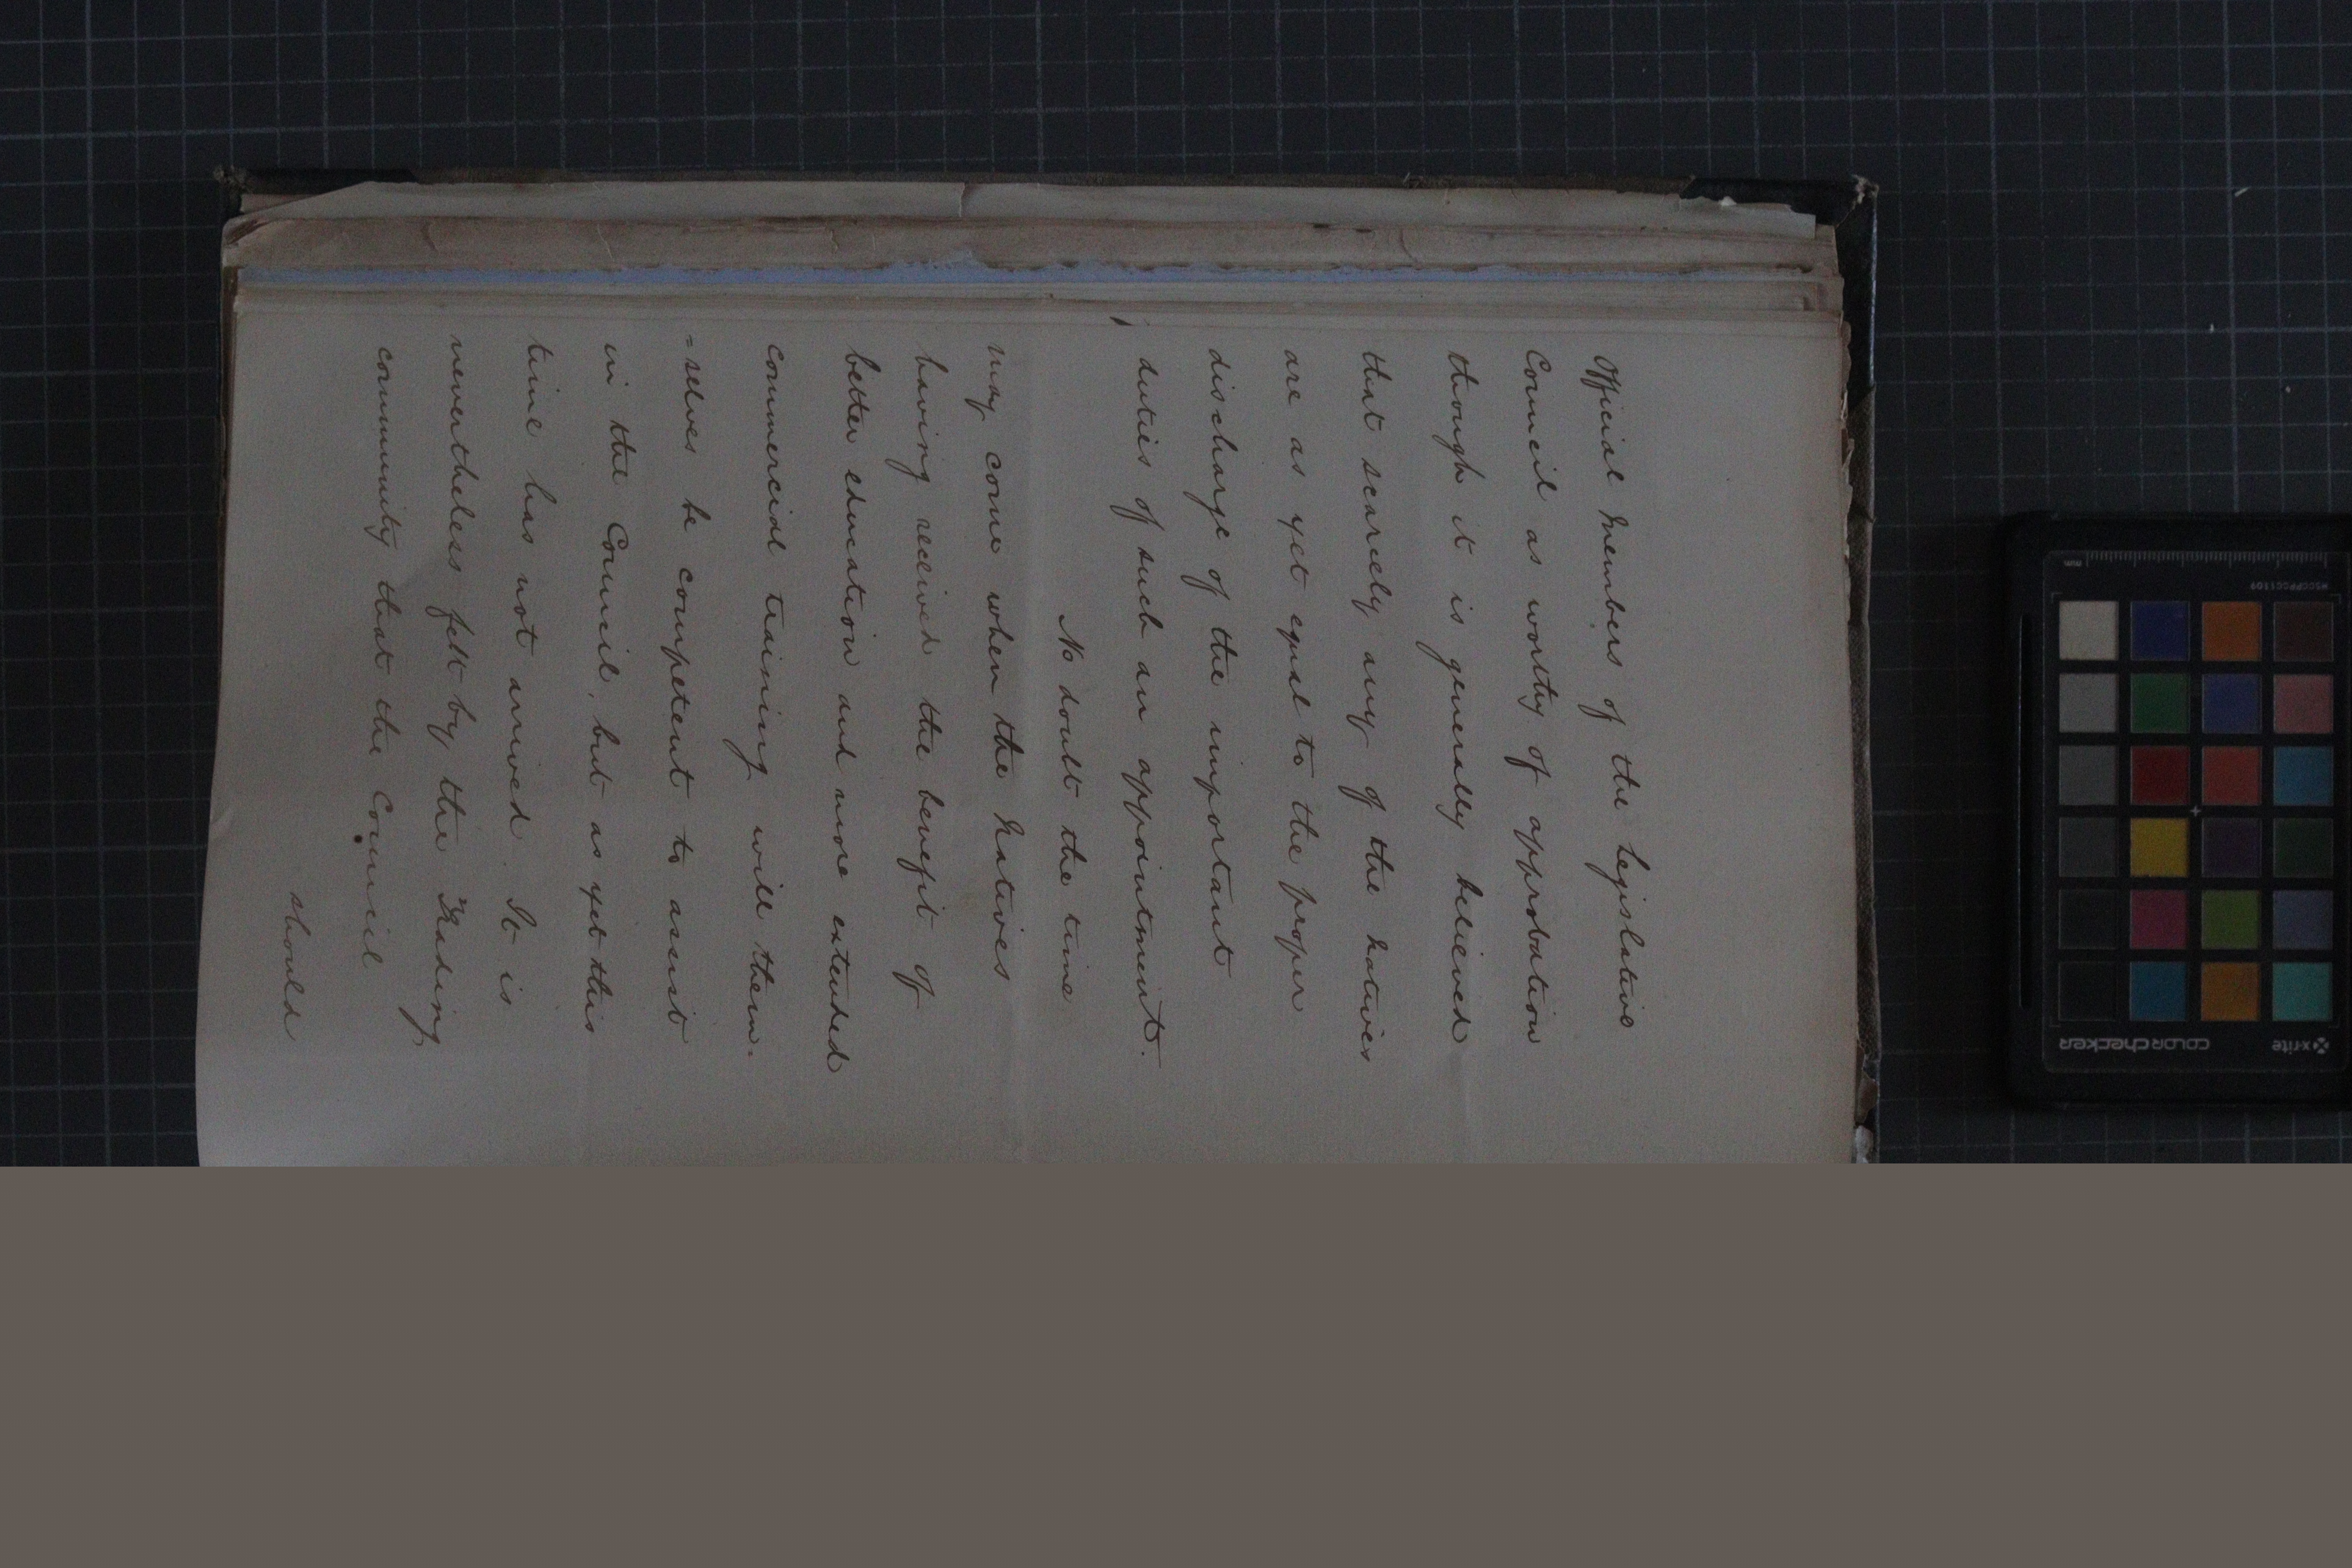 official Members of the Legislative
Council as worthy of approbation
though it is generally believed
that scarcely any of the natives
are as yet equal to the proper
discharge of the important
duties of such an appointment.
No doubt the time
may come when the Natives
having received the benefit of
better education and more extended
commercial training will them-
=selves be competent to assist
in the Council, but as yet this
time has not arrived It is
nevertheless felt by the Trading
community that the Council
should
x-rite
colorchecker
MSCCPPCC1109
mm